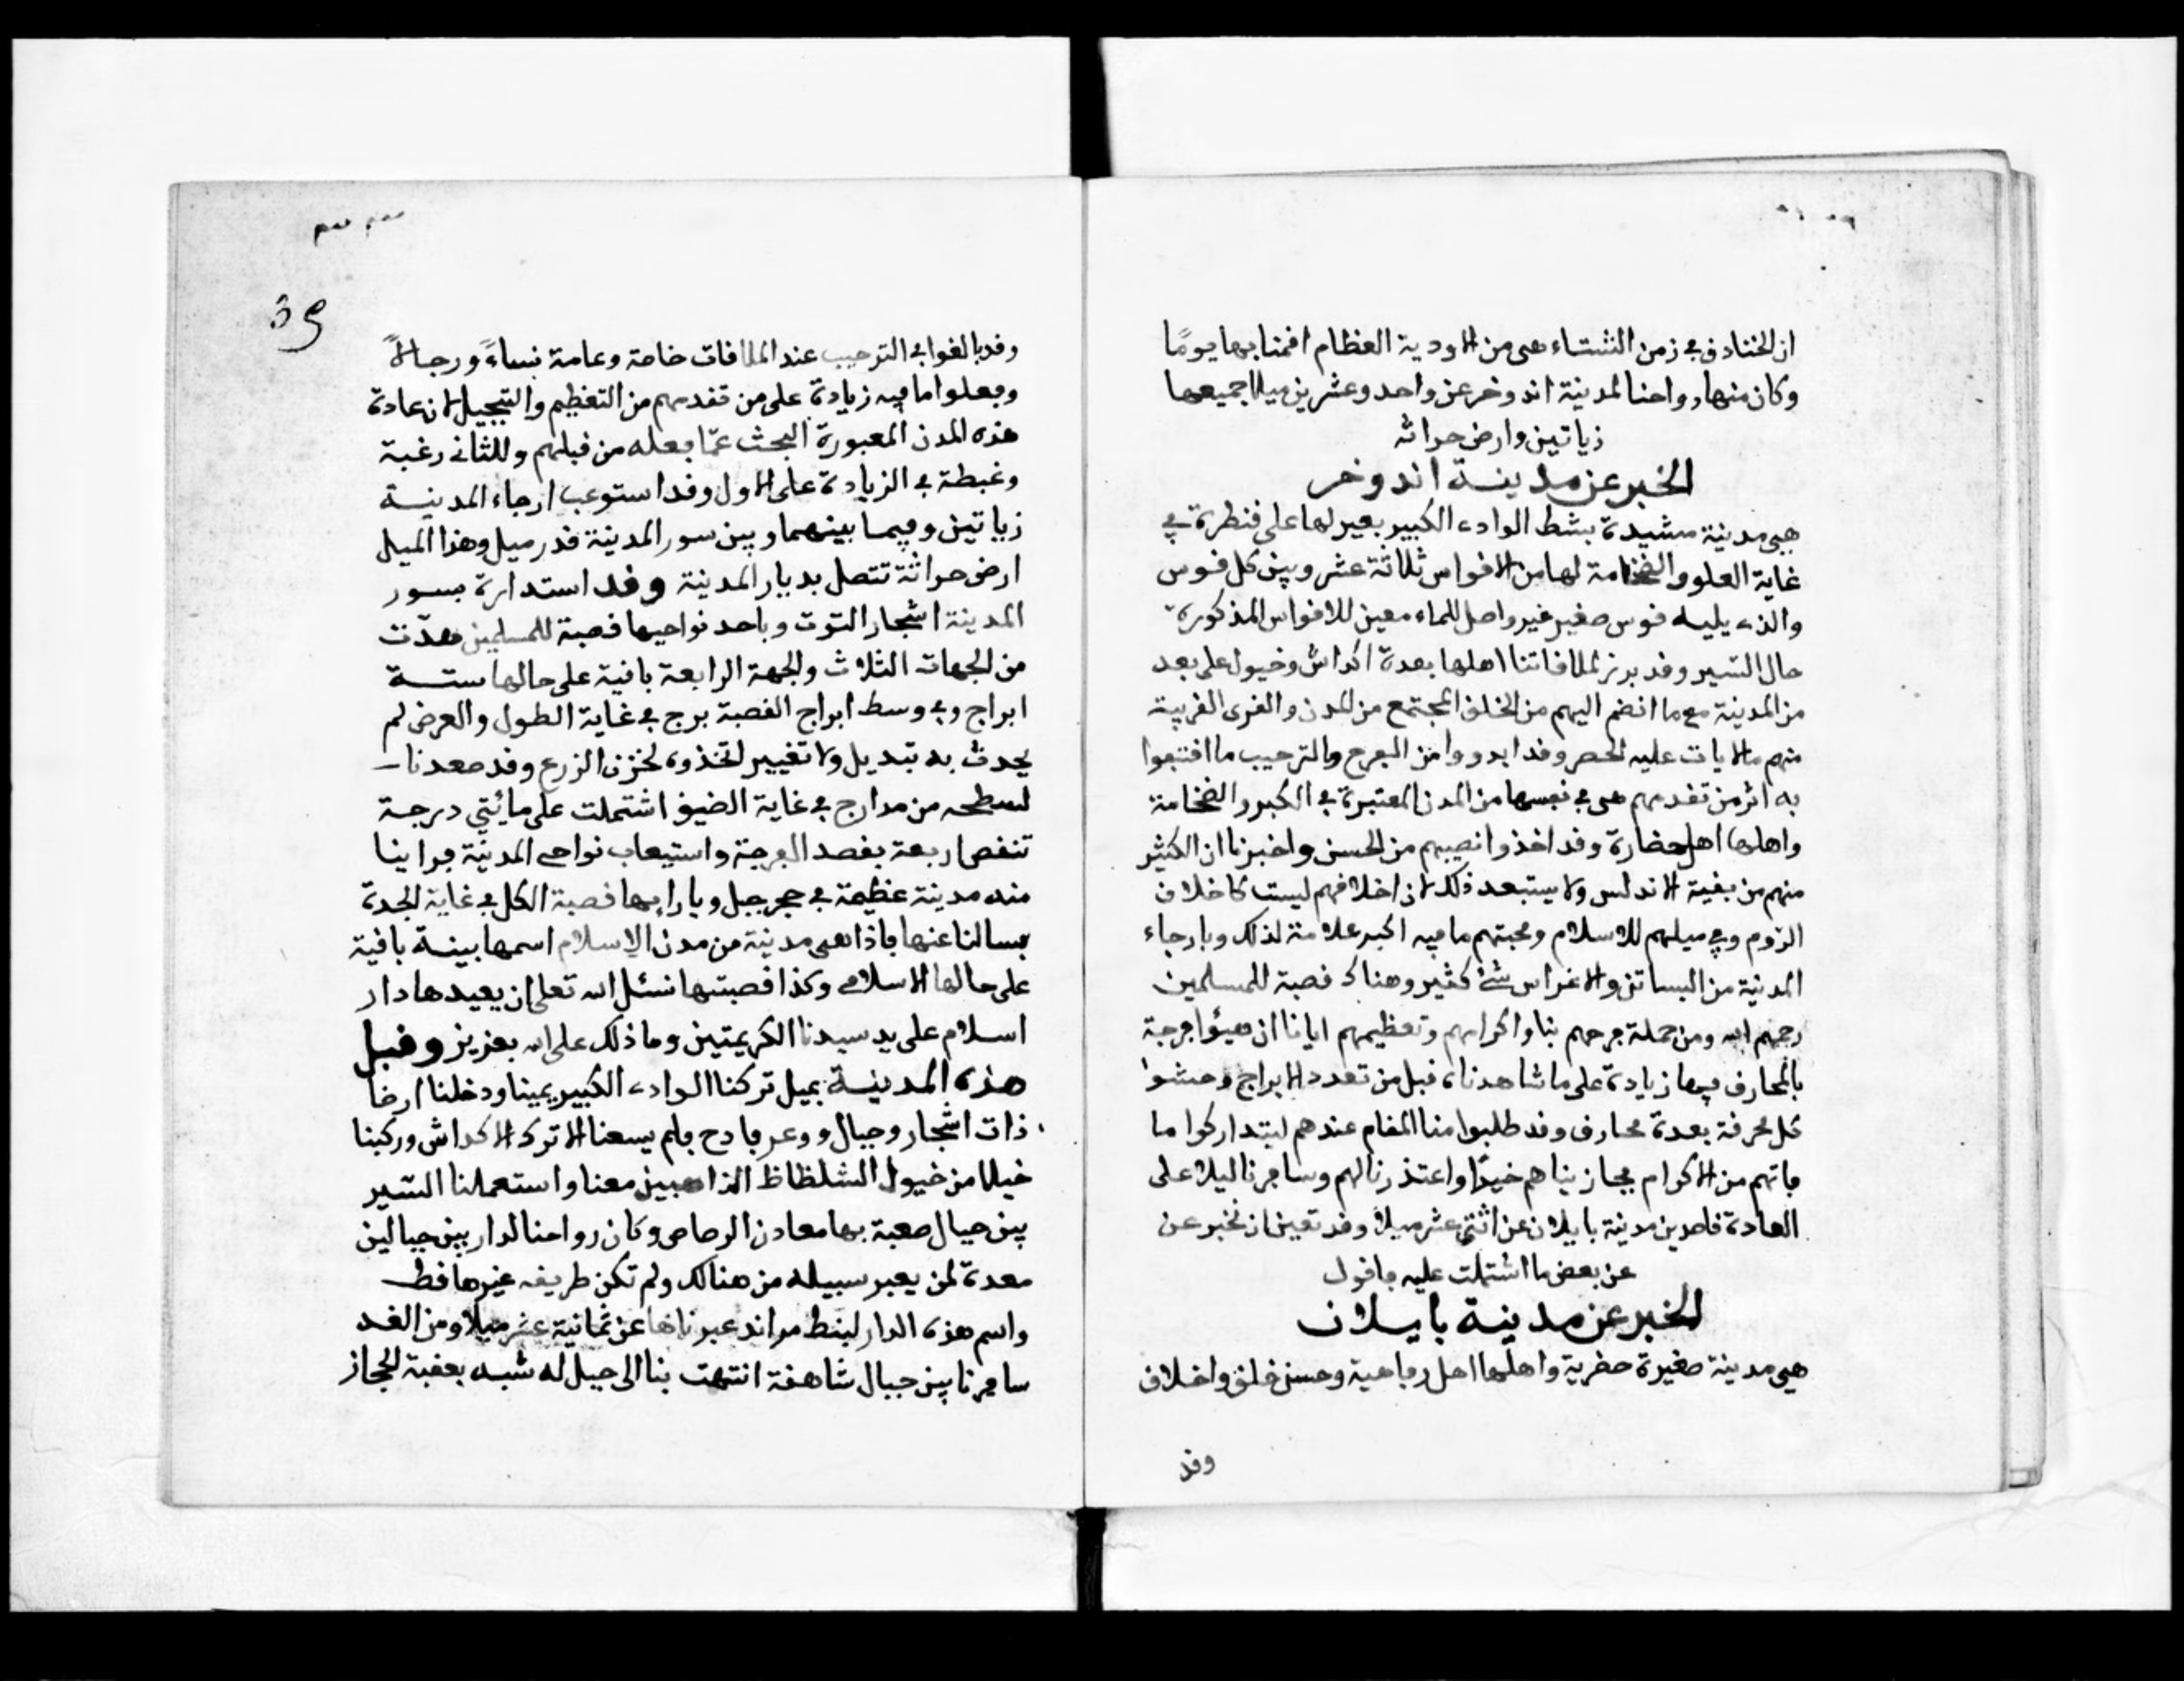 ان الخنادق في زمن الشتاء هي من الاودية العظام افمنا بها يومًا
وكان منها رواحنا لمدينة اندوخر عن واحد وعشرين ميلا جميعها
زياتين وارض حراثة
الخبر عن مدينة اندوخر
هي مدينة مشيدة بشط الوادي الكبير يعبر لها على قنطرة في
غاية العلو والضخامة لها من الاقواس ثلاثة عشر وبين كل قوس
والذي يليه قوس صغير غير واصل للماء معين للاقواس المذكورة
حال السير وقد برز لملاقاتنا اهلها بعدة اكداش وخيول على بعد
من المدينة مع ما انضم اليهم من الخلق المجتمع من المدن والقرى القريبة
منهم ما لا يات عليه الحصر وقد ابدوا من الفرح والترحيب ما اقتفوا
به اثر من تقدمهم هي في نفسها من المدن المعتبرة في الكبر والضخامة
واهلها اهل حضارة وقد اخذوا نصيبهم من الحسن واخبرنا ان الكثير
منهم من بقية الاندلس ولا يستبعد ذلك لان اخلاقهم ليست كاخلاق
الروم وفي ميلهم للاسلام ومحبتهم ما فيه اكبر علامة لذلك وبارجاء
المدينة من البساتن والاغراس شئ كثير وهناك قصبة للمسلمين
رحمهم الله ومن جملة فرحهم بنا واكرامهم وتعظيمهم ايانا ان هيئوا فرجة
بالمحارق فيها زيادة على ما شاهدناه قبل من تعدد الابراج وحشوا
كل محرقة بعدة محارق وقد طلبوا منا المقام عندهم ليتداركوا ما
فاتهم من الاكرام فجازيناهم خيرًا واعتذرنا لهم وسافرنا ليلا على
العادة قاصدين مدينة بايلان عن اثني عشر ميلا وقد تعين ان نخبر عن
عن بعض ما اشتملت عليه فاقول
الخبر عن مدينة بايلان
هي مدينة صغيرة حضرية واهلها اهل رفاهية وحسن خلق واخلاق
وقد
39
وقد بالغوا في الترحيب عند الملاقات خاصة وعامة نساءً ورجالاً
وفعلوا ما فيه زيادة على من تقدمهم من التعظيم والتبجيل لان عادة
هذه المدن المعبورة البحث عمّا فعله من قبلهم وللثاني رغبة
وغبطة في الزيادة على الاول وقد استوعب ارجاء المدينة
زياتين وفيما بينهما وبين سور المدينة قدر ميل وهذا الميل
ارض حراثة تتصل بديار المدينة وقد استدارة بسور
المدينة اشجار التوت وباحد نواحيها قصبة للمسلمين هدّت
من الجهات الثلاث والجهة الرابعة باقية على حالها ستة
ابراج وفي وسط ابراج القصبة برج في غاية الطول والعرض لم
يحدث به تبديل ولا تغيير اتخذوه لخزن الزرع وقد صعدنا
لسطحه من مدارج في غاية الضيق اشتملت على مائتي درجة
تنقص اربعة بقصد الفرجة واستيعاب نواحي المدينة فراينا
منه مدينة عظيمة في حجر جبل وبازايها قصبة الكل في غاية الجدة
فسالنا عنها فاذا هي مدينة من مدن الاسلام اسمها بينة باقية
على حالها الاسلامي وكذا قصبتها نسئل الله تعلى ان يعيدها دار
اسلام على يد سيدنا الكريمتين وما ذلك على الله بعزيز وقبل
هذه المدينة بميل تركنا الوادي الكبير يمينا ودخلنا ارضا
ذات اشجار وجبال ووعر فادح فلم يسعنا الا ترك الاكداش وركبنا
خيلا من خيول الشلظاظ الذاهبين معنا واستعملنا السير
بين جبال صعبة بها معادن الرصاص وكان رواحنا لدار بين جبالين
معدة لمن يعبر سبيله من هنالك ولم تكن طريقه غيرها قط
واسم هذه الدار لبنط مراند عبرناها عن ثمانية عشر ميلا ومن الغد
سافرنا بين جبال شاهقة انتهت بنا الى جبل له شبه بعقبة الحجاز